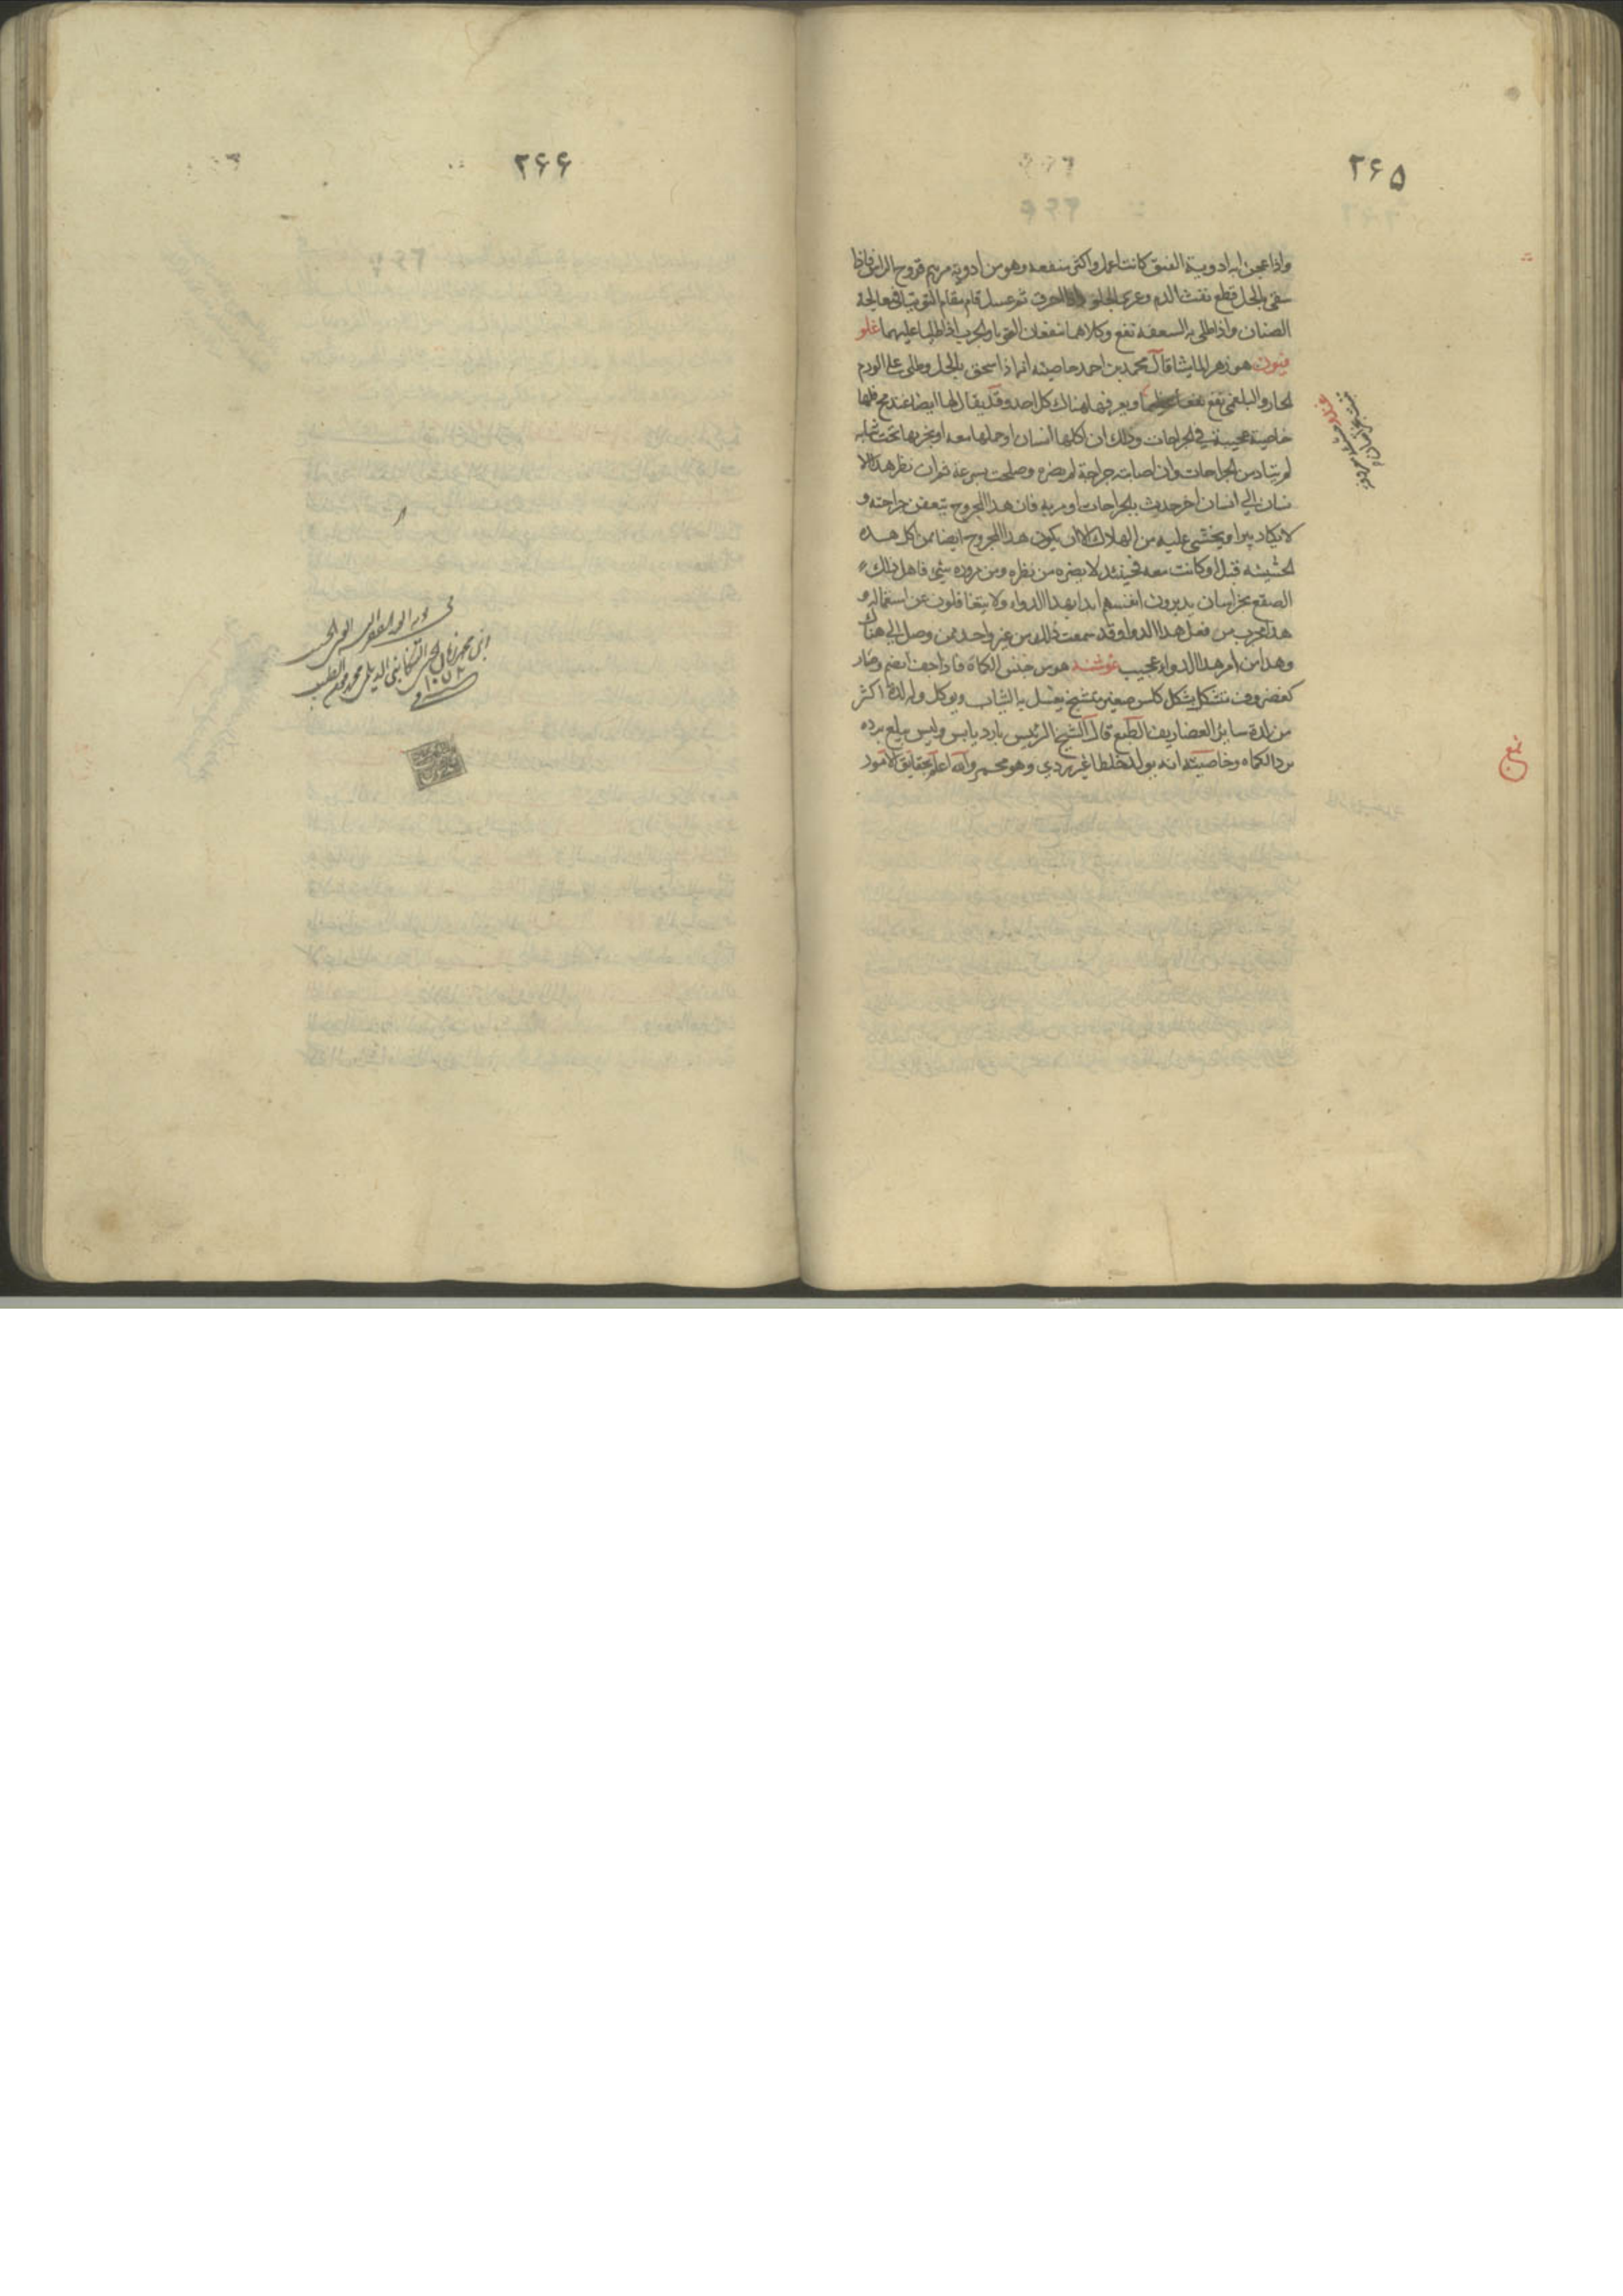 ۲۶۵
واذا عجن به ادوية الفتق كانت اعمل واكثر منفعه وهو من ادوية مرهم قروح الراس فاذا
سقى بالخل قطع نفث الدم وغرى الحلق واذا احرق ثم غسل قام مقام التوتيا في معالجة
الصنان واذا طلى به السعفه نفع وكلاهما ينفعان القوبا والجرب اذا طليا عليهما غلو
فنون هو زهر الماميثا قال محمد بن احمد خاصيته انه اذا سحق بالخل وطلى على الورم
الحار والبلغمى نفع نفعا عظيما ويعرفها هناك كل احد وقد يقال لها ايضا عندهم
خاصية عجيبة في الجراحات وذلك ان اكلها انسان او حملها معه او بخر بها تحت ثيابه
لم يتاد من الجراحات وان اصابته جراحة لم تضره وصلحت بسرعة ثم ان نظر هذا الا
نسان الى انسان اخر حديث بالجراحات او مر به فان هذا المجروح يتعفن جراحته و
لا يكاد يبرا ويخشى عليه من الهلاك الا ان يكون هذا المجروح ايضا ممن اكل هذه
الحشيشه قبل او كانت معه فحينئذ لا يضره من نظره ومن مروره شي فاهل ذلك
الصقع بخراسان يدبرون انفسهم ابدا بهذا الدواء ولا يتغافلون عن استعماله و
هذا مجرب من فعل هذا الدوا وقد سمعت ذلك من غير واحد ممن وصل الى هناك
وهذا من امر هذا الدواء عجيب غوشنه هو من جنس الكماة فاذا جف انضم وصار
كغضروف متشكل بشكل كاس صغير متشنج يغسل به الثياب ويوكل وله لذة اكثر
من لذة ساير الغضاريف الطبع قال الشيخ الرئيس بارد يابس وليس يبلغ برده
برد الكماه وخاصيته انه يولد خلطا غير ردي وهو محمر والله اعلم بحقايق الامور
۲۶۶
ابن محمد زمان التنكابنى الديلمى محمد مومن الطبيب